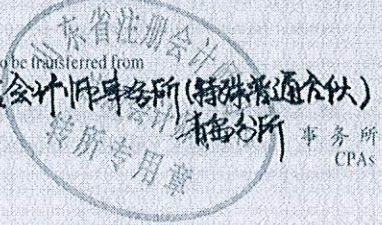 东省注册会计
o be transferred from
会计师事务所(特殊普通合伙)
青岛分所 事务所
CPAs
转所专用章